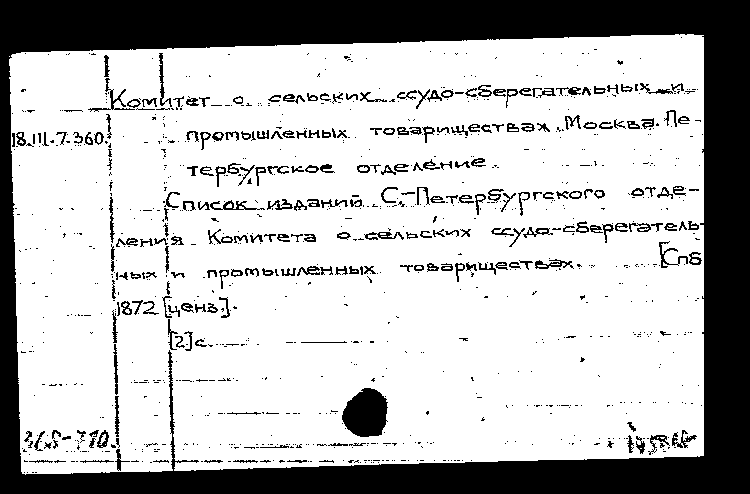 Комитет о сельских ссудо-сберегательных и
18.III.7.360. промышленных товариществах. Москва. Пе-
тербургское отделение.
Список изданий С.-Петербургского отде-
ления Комитета о сельских ссудо-сберегатель-
ных и промышленных товариществах. [Спб
1872 [ценз.].
[2] с.